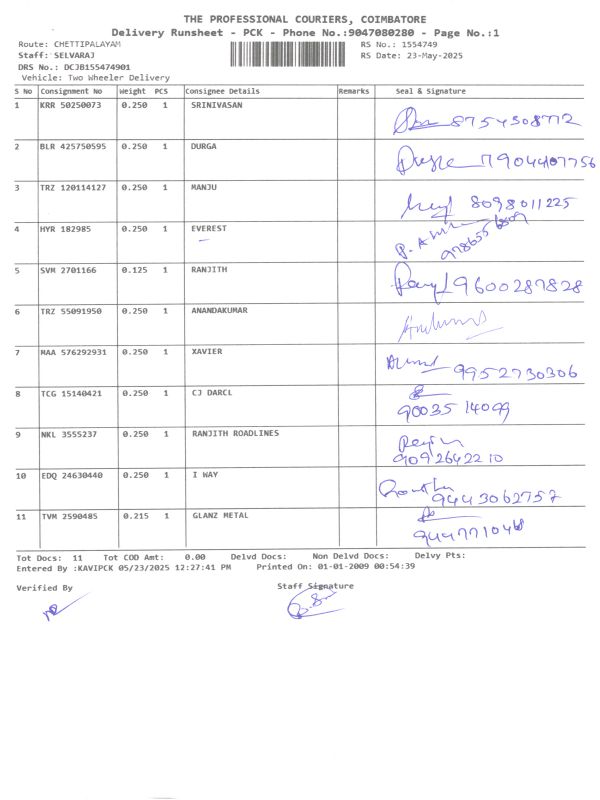 THE PROFESSIONAL COURIERS, COIMBATORE
Delivery Runsheet - PCK - Phone No.:9047080280 - Page No.:1
Route: CHETTIPALAYAM RS No.: 1554749
Staff: SELVARAJ RS Date: 23-May-2025
DRS No.: DCJB155474901
Vehicle: Two Wheeler Delivery
S No Consignment No Weight PCS Consignee Details Remarks Seal & Signature
1 KRR 50250073 0.250 1 SRINIVASAN
8754508772
2 BLR 425750595 0.250 1 DURGA
7904407756
3 TRZ 120114127 0.250 1 MANJU
8098011225
4 HYR 182985 0.250 1 EVEREST
5 SVM 2701166 0.125 1 RANJITH
9600287828
6 TRZ 55091950 0.250 1 ANANDAKUMAR
7 MAA 576292931 0.250 1 XAVIER
9952730306
8 TCG 15140421 0.250 1 CJ DARCL
90035 14099
9 NKL 3555237 0.250 1 RANJITH ROADLINES
9092642210
10 EDQ 24630440 0.250 1 I WAY
9443062757
11 TVM 2590485 0.215 1 GLANZ METAL
Tot Docs: 11 Tot COD Amt: 0.00 Delvd Docs: Non Delvd Docs: Delvy Pts:
Entered By :KAVIPCK 05/23/2025 12:27:41 PM Printed On: 01-01-2009 00:54:39
Verified By Staff Signature